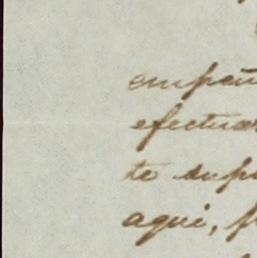 empeñ
efectua
te supl
aqui, p